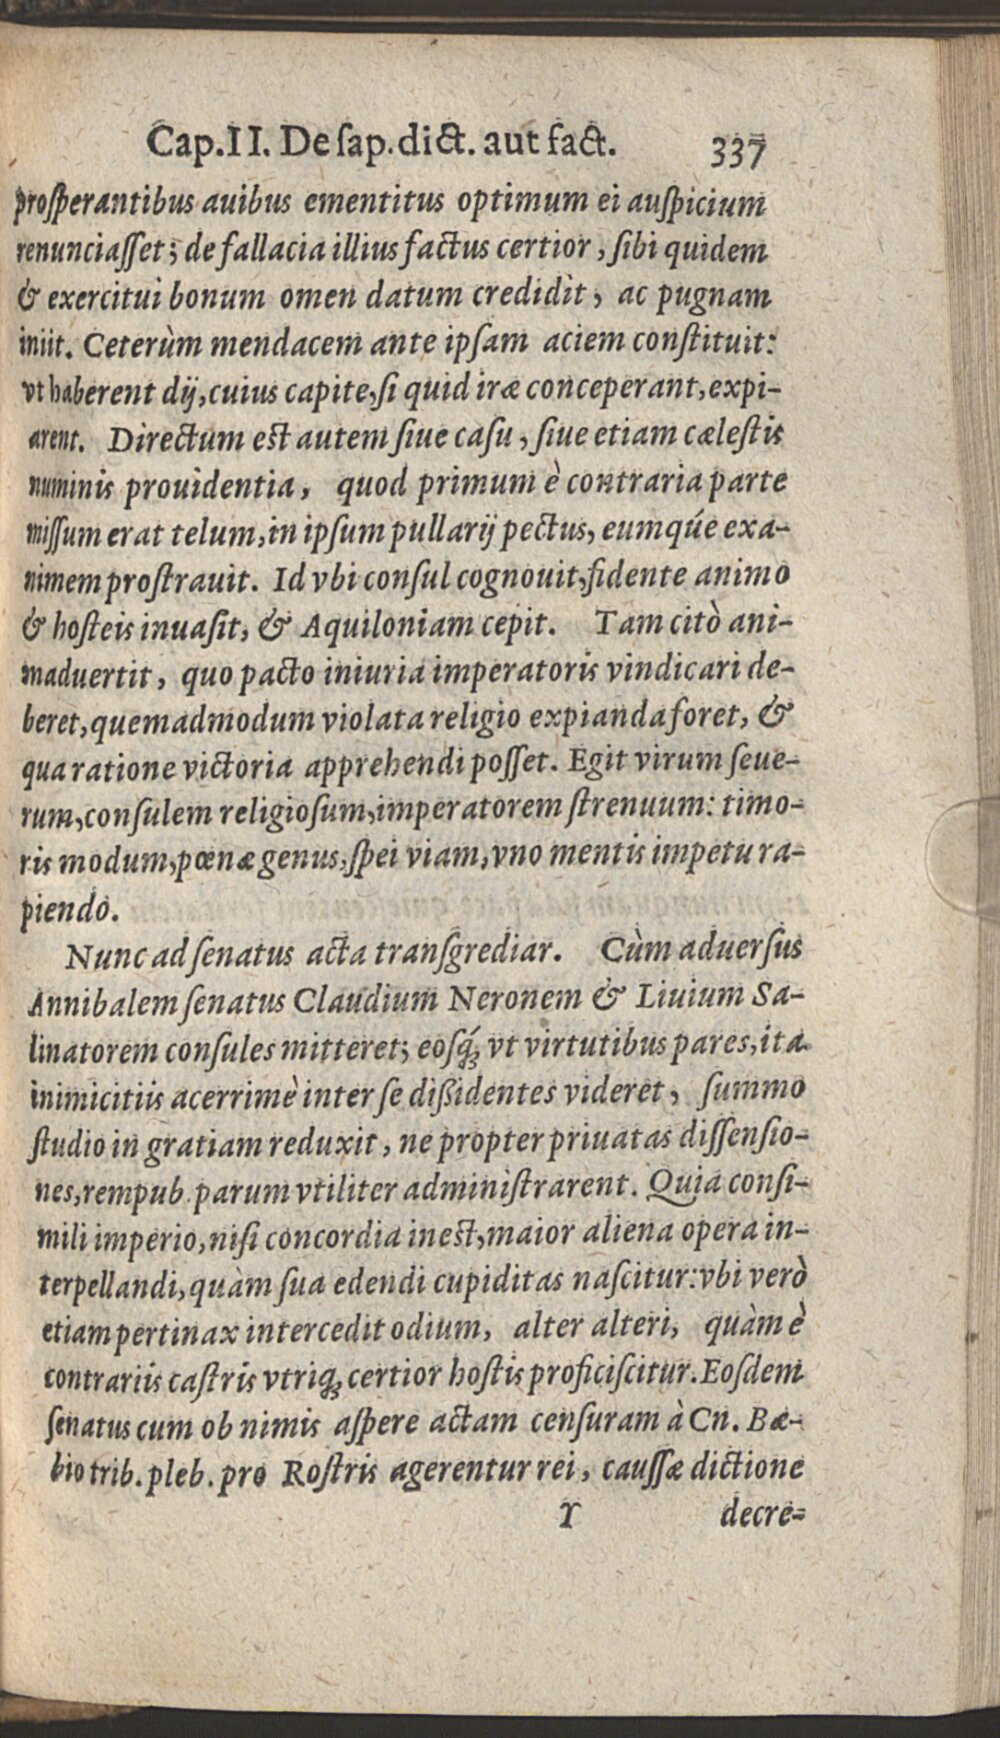 Cap.II. De ſap.dict. aut fact. 337
proſperantibus auibus ementitus optimum ei auſpicium
renunciaſſet; de fallacia illius factus certior, ſibi quidem
& exercitui bonum omen datum credidit, ac pugnam
iniit. Ceterùm mendacem ante ipſam aciem conſtituit:
vt haberent dij, cuius capite, ſi quid iræ conceperant, expi-
arent. Directum est autem ſiue caſu, ſiue etiam cæleſtis
numinis prouidentia, quod primum è contraria parte
miſſum erat telum, in ipſum pullarij pectus, eumqúe exa-
nimem proſtrauit. Id vbi conſul cognouit, fidente animo
& hoſteis inuaſit, & Aquiloniam cepit. Tam citò ani-
maduertit, quo pacto iniuria imperatoris vindicari de-
beret, quemadmodum violata religio expianda foret, &
qua ratione victoria apprehendi poſſet. Egit virum ſeue-
rum, conſulem religioſum, imperatorem ſtrenuum: timo-
ris modum, pœnæ genus, ſpei viam, vno mentis impetu ra-
piendo.
Nunc ad ſenatus acta tranſgrediar. Cùm aduerſus
Annibalem ſenatus Claudium Neronem & Liuium Sa-
linatorem conſules mitteret; eoſq́; vt virtutibus pares, ita
inimicitiis acerrimè inter ſe dißidentes videret, ſummo
ſtudio in gratiam reduxit, ne propter priuatas diſſenſio-
nes, rempub. parum vtiliter adminiſtrarent. Quia conſi-
mili imperio, niſi concordia inest, maior aliena opera in-
terpellandi, quàm ſua edendi cupiditas naſcitur: vbi verò
etiam pertinax intercedit odium, alter alteri, quàm è
contrariis caſtris vtriq; certior hoſtis proficiſcitur. Eoſdem
ſenatus cum ob nimis aſpere actam cenſuram à Cn. Bæ-
bio trib. pleb. pro Roſtris agerentur rei, cauſſæ dictione
Y decre-